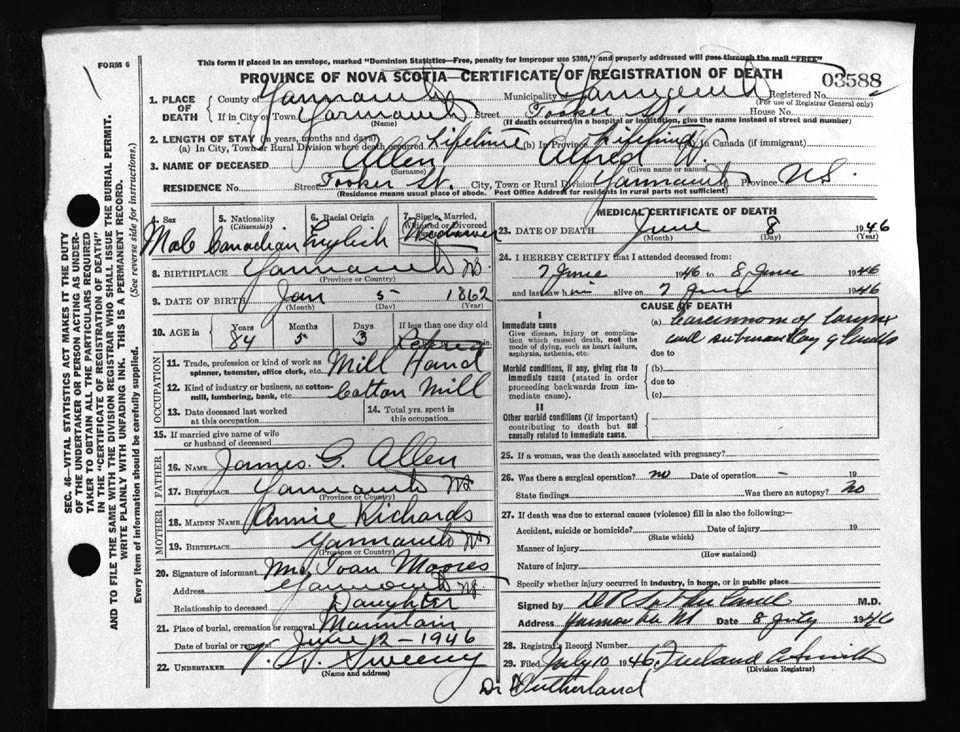 This form if placed in an envelope, marked "Dominion Statistics—Free, penalty for improper use $300," and properly addressed will pass through the mail "FREE"
FORM 6
PROVINCE OF NOVA SCOTIA—CERTIFICATE OF REGISTRATION OF DEATH
03588
1. PLACE OF DEATH County of Yarmouth Municipality of Yarmouth Registered No.
(For use of Registrar General only)
If in City or Town Yarmouth Street Tooker St. House No.
(Name) (If death occurred in a hospital or institution, give the name instead of street and number)
2. LENGTH OF STAY (in years, months and days)
(a) In City, Town or Rural Division where death occurred Lifetime (b) In Province Lifetime (c) In Canada (if immigrant)
3. NAME OF DECEASED Allen Alfred W.
(Surname) (Given name or names)
RESIDENCE No. Street Tooker St. City, Town or Rural Division Yarmouth Province N.S.
(Residence means usual place of abode. Post Office Address for residents in rural parts not sufficient)
SEC. 46—VITAL STATISTICS ACT MAKES IT THE DUTY
OF THE UNDERTAKER OR PERSON ACTING AS UNDER-
TAKER TO OBTAIN ALL THE PARTICULARS REQUIRED
IN THE "CERTIFICATE OF REGISTRATION OF DEATH"
AND TO FILE THE SAME WITH THE DIVISION REGISTRAR WHO SHALL ISSUE THE BURIAL PERMIT.
WRITE PLAINLY WITH UNFADING INK. THIS IS A PERMANENT RECORD.
Every item of information should be carefully supplied. (See reverse side for instructions.)
4. Sex 5. Nationality (Citizenship) 6. Racial Origin 7. Single, Married, Widowed or Divorced
Male Canadian English Widower
8. BIRTHPLACE Yarmouth N.S.
(Province or Country)
9. DATE OF BIRTH Jan 5 1862
(Month) (Day) (Year)
10. AGE in Years Months Days If less than one day old
84 5 3
Retired
OCCUPATION
11. Trade, profession or kind of work as spinner, teamster, office clerk, etc. Mill Hand
12. Kind of industry or business, as cotton-mill, lumbering, bank, etc. Cotton Mill
13. Date deceased last worked at this occupation 14. Total yrs. spent in this occupation
15. If married give name of wife or husband of deceased
FATHER
16. NAME James G. Allen
17. BIRTHPLACE Yarmouth N.S.
(Province or Country)
MOTHER
18. MAIDEN NAME Annie Richards
19. BIRTHPLACE Yarmouth N.S.
(Province or Country)
20. Signature of informant Mrs. Ivan Moores
Address Yarmouth N.S.
Relationship to deceased Daughter
21. Place of burial, cremation or removal Mountain
Date of burial or removal June 12 - 1946
22. UNDERTAKER Sweeny
(Name and address)
MEDICAL CERTIFICATE OF DEATH
23. DATE OF DEATH June 8 1946
(Month) (Day) (Year)
24. I HEREBY CERTIFY that I attended deceased from:
7 June 1946 to 8 June 1946
and last saw him alive on 7 June 1946
CAUSE OF DEATH
I
Immediate cause (a) Carcinoma of larynx
Give disease, injury or complication which caused death, not the mode of dying, such as heart failure, asphyxia, asthenia, etc. and submaxillary glands
due to
Morbid conditions, if any, giving rise to immediate cause (stated in order proceeding backwards from immediate cause). (b)
due to
(c)
II
Other morbid conditions (if important) contributing to death but not causally related to immediate cause.
25. If a woman, was the death associated with pregnancy?
26. Was there a surgical operation? no Date of operation - 19
State findings Was there an autopsy? No
27. If death was due to external causes (violence) fill in also the following:—
Accident, suicide or homicide? Date of injury 19
(State which)
Manner of injury
(How sustained)
Nature of injury
Specify whether injury occurred in industry, in home, or in public place
Signed by M.D.
Address Yarmouth Date 8 July 1946
28. Registrars Record Number
29. Filed July 10 1946
(Division Registrar)
Dr Sutherland